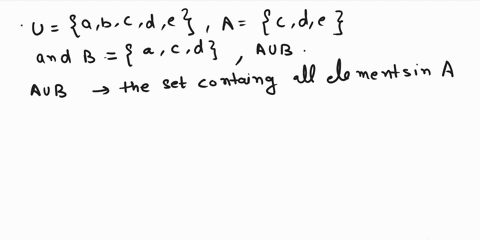 U = {a,b,c,d,e}, A = {c,d,e}
and B = {a,c,d}, A∪B.
A∪B → the set containg all elements in A